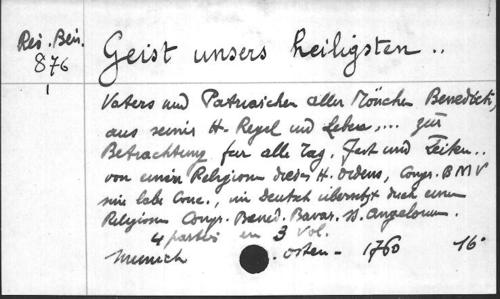 Res. Ben.
876
1
Geist unsers heiligsten ..
Vaters und Patriarchen aller Mönchen Benedicti,
aus seiner H. Regel und Leben, ... zur
Betrachtung für alle Tag, Fest und Zeiten..
von einem Religiosen dieses H. Ordens, Congr. B M V
sine labe Conc., in Deutsch übersetzt durch einen
Religiosen Congr. Bened. Bavar. SS. Angelorum.
4 parties en 3 vol.
Munich . Osten - 1760 16°